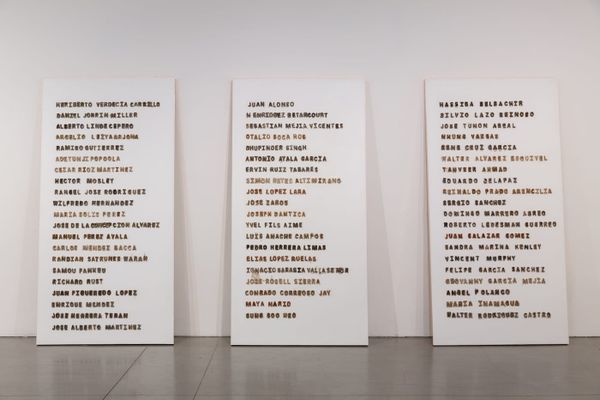 HERIBERTO VERDECIA CARRILLO
DANIEL JORRIN MILLER
ALBERTO LINDECEPERO
ARGELIO LEIVA ARJONA
RAMIRO GUTIERREZ
ADETUNJI POPOOLA
CESAR RIOZ MARTINEZ
HECTOR MOSLEY
RANGEL JOSE RODRIGUEZ
WILFREDO HERNANDEZ
MARIA SOLIS PEREZ
JOSE DE LA CONCEPCION ALVAREZ
MANUEL PEREZ AYALA
CARLOS MENDEZ BACCA
KANDIAH SATKUNES
SAMOU PAHKEU
RICHARD RUST
JUAN FIGUEREDO LOPEZ
ENRIQUE MENDEZ
JOSE HERRERA TERAN
JOSE ALBERTO MARTINEZ
JUAN ALONSO
HENRIQUEZ BETANCOURT
SEBASTIAN MEJIA VICENTES
OTALIO SOCA ROS
BHUPINDER SINGH
ANTONIO AYALA GARCIA
ERVIN RUIZ TABARES
SIMON REYES ALTIMIRANO
JOSE LOPEZ LARA
JOSE ZAÑOS
JOSEPH DANTICA
YVEL FILS AIME
LUIS ANACHE CAMPOS
PEDRO HERRERA LIMAS
ELIAS LOPEZ RUELAS
IGNACIO SARABIA VALLASEÑOR
JOSE ROSELL SIERRA
CONRADO CORREOSO JAY
MAYA NARIO
SUNG SOO HEO
HASSIBA BELBACHIR
SILVIO LAZO REINOSO
JOSE TUNON ARSAL
NHUNG VARGAS
RENE CRUZ GARCIA
WALTER ALVAREZ ESQUIVEL
TANVEER AHMAD
EDUARDO DELAPAZ
REINALDO PRADO ARENCILIA
SERGIO SANCHEZ
DOMINGO MARRERO ABREO
ROBERTO LEDESMAN GUERRERO
JUAN SALAZAR GOMEZ
SANDRA MARINA KENLEY
VINCENT MURPHY
FELIPE GARCIA SANCHEZ
GEOVANNY GARCIA MEJIA
ANGEL POLANCO
MARIA INAMAGUA
WALTER RODRIGUEZ CASTRO